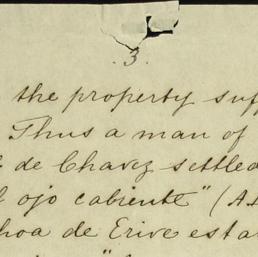 .3.
the property suf
Thus a man of
de Chavez settled
ojo cabiente" (A
hoa de Erive esta